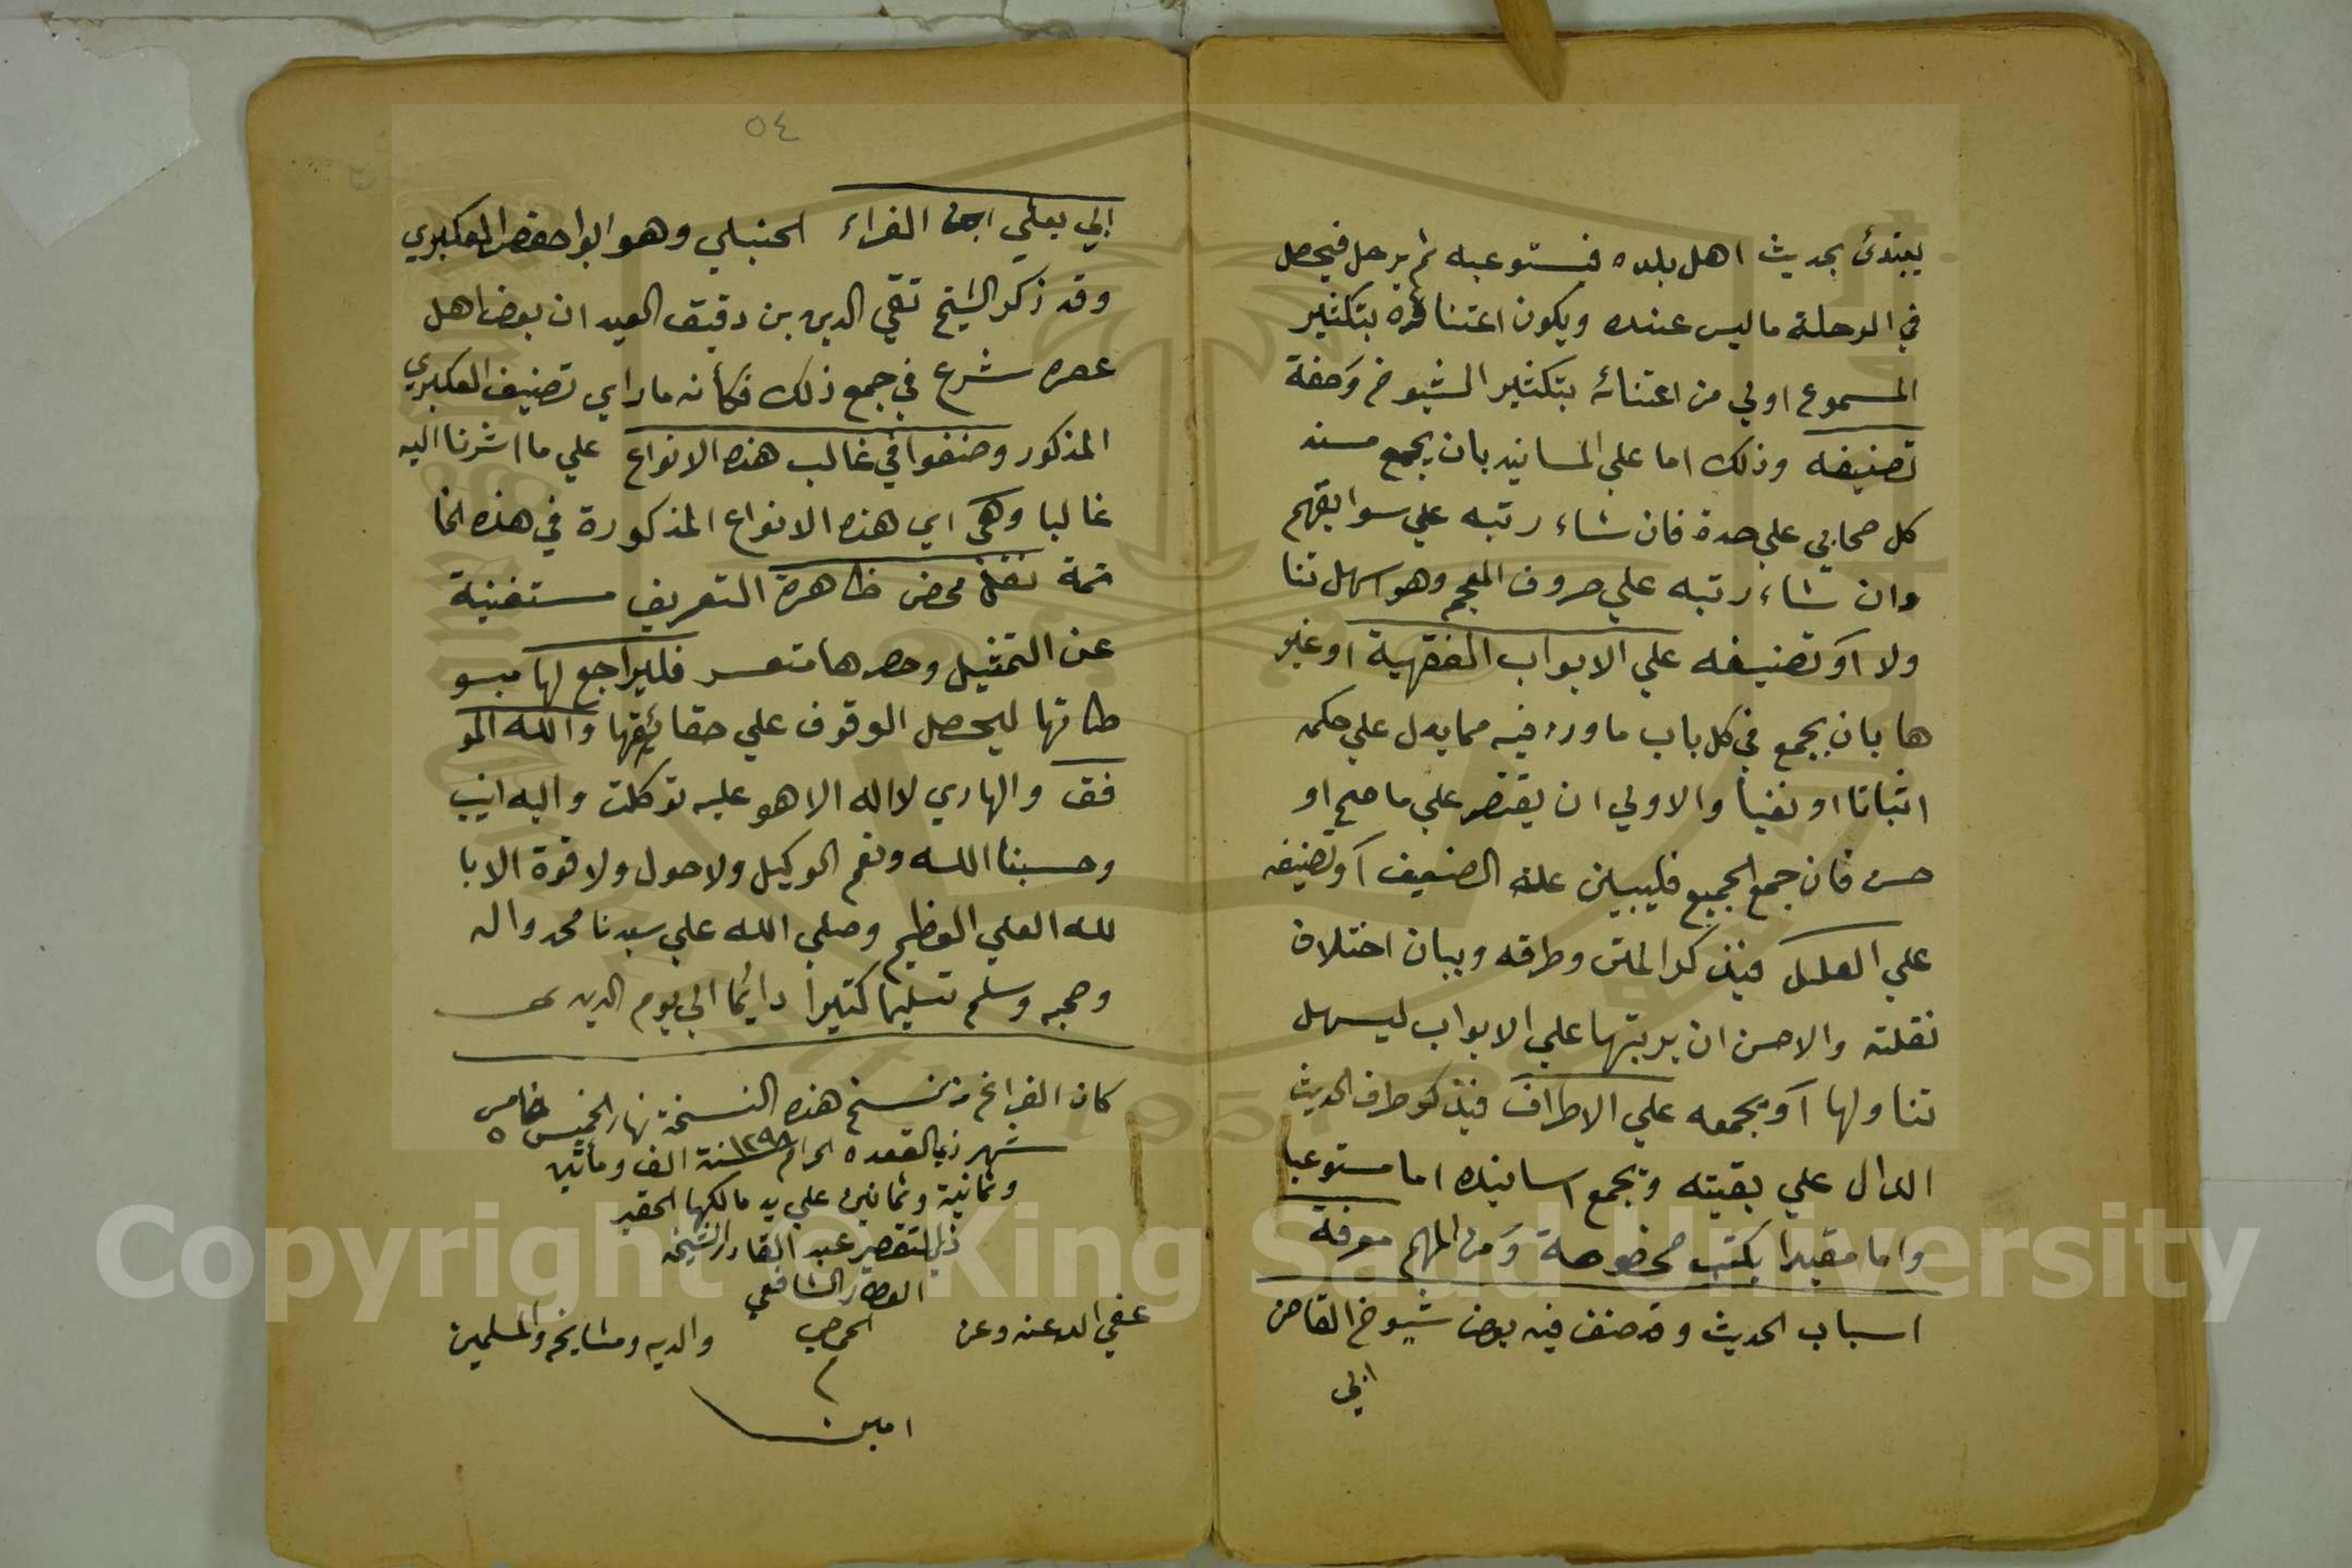 يبتدئ بحديث اهل بلده فيستوعبه ثم يرحل فيحصل
في الرحلة ما ليس عنده ويكون اعتناؤه بتكثير
المسموع اولي من اعتنائه بتكثير الشيوخ وصفة
تصنيفه وذلك اما علي المسانيد بان يجمع مسند
كل صحابي علي حدة فان شاء رتبه علي سوابقهم
وان شاء رتبه علي حروف المعجم وهو اسهل تنا
ولا او تصنيفه علي الابواب الفقهية او غير
ها بان يجمع في كل باب ما ورد فيه مما يدل علي حكمه
اثباتا او نفيا والاولي ان يقتصر علي ما صح او
حسن فان جمع الجميع فليبين علة الضعيف او تصنيفه
علي العلل فيذكر المتن وطرقه وبيان اختلاف
نقلته والاحسن ان يرتبها علي الابواب ليسهل
تناولها او يجمعه علي الاطراف فيذكر طرف الحديث
الدال علي بقيته ويجمع اسانيده اما مستوعبا
واما مقيدا بكتب مخصوصة ومن المهم معرفة
اسباب الحديث وقد صنف فيه بعض شيوخ القاضي
ابي
٥٤
ابي يعلي ابن الفراء الحنبلي وهو ابو احفص العكبري
وقد ذكر الشيخ تقي الدين بن دقيق العيد ان بعض اهل
عصره شرع في جمع ذلك فكأنه ما راي تصنيف العكبري
المذكور وصنفوا في غالب هذه الانواع علي ما اشرنا اليه
غالبا وهي اي هذه الانواع المذكورة في هذه الخا
تمة نقل محض ظاهرة التعريف مستغنية
عن التمثيل وحصرها متعسر فليراجع لها مبسو
طاتها ليحصل الوقوف علي حقائقها والله المو
فق والهادي لا اله الا هو عليه توكلت واليه انيب
وحسبنا الله ونعم الوكيل ولا حول ولا قوة الا با
لله العلي العظيم وصلي الله علي سيدنا محمد واله
وصحبه وسلم تسليما كثيرا دائما الي يوم الدين
كان الفراغ من نسخ هذه النسخة نهار الخميس خامس ٥
شهر ذي القعده الحرام ١٢٩٨ سنة الف ومأتين
وثمانية وثمانين علي يد مالكها الحقير
ذي التقصير عبد القادر الشيخه
العطار الشافعي
عفي الله عنه وعن الحمصي والديه ومشايخه والمسلمين
م
امين